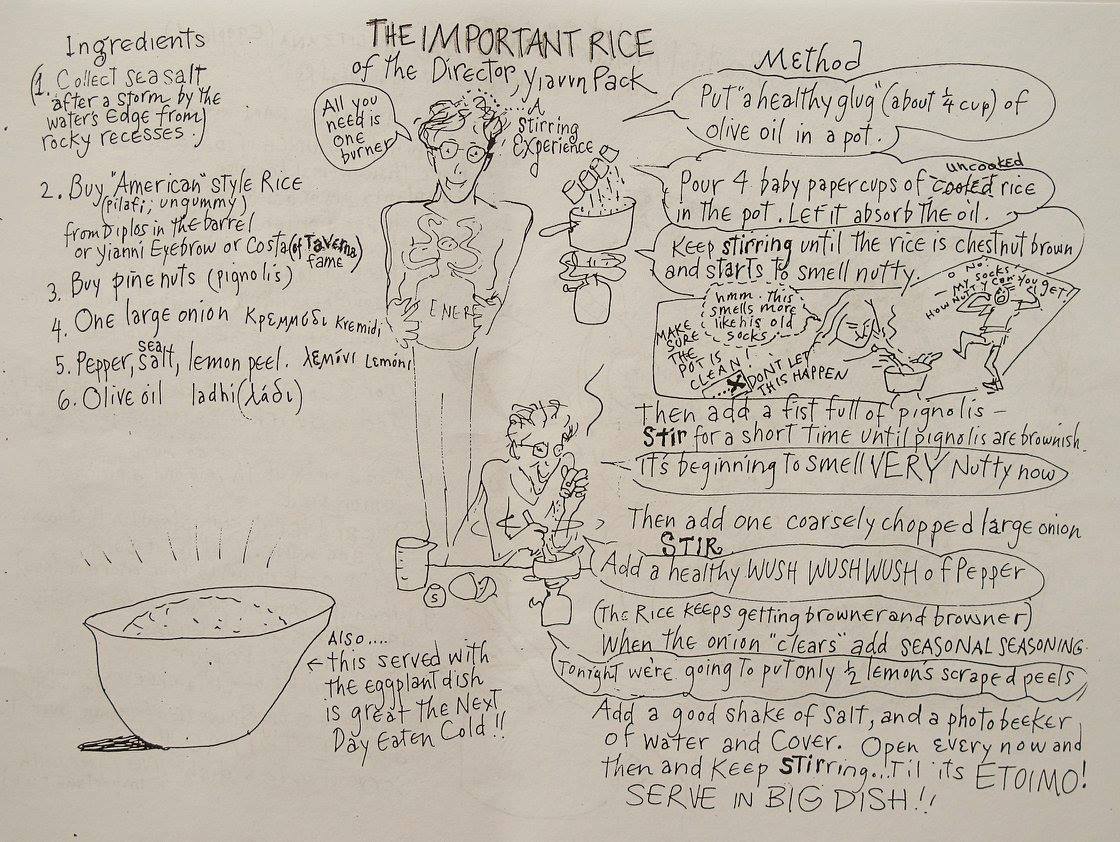 THE IMPORTANT RICE
of the Director, Yiavvn Pack
A
Stirring
Experience
Ingredients
(1. Collect sea salt
after a storm by the
water's edge from
rocky recesses.)
2. Buy "American" style Rice
(pilafi; ungummy)
from Diplos in the barrel
or Yianni Eyebrow or Costa (of TaVerna
fame)
3. Buy pine nuts (pignolis)
4. One large onion Κρεμμύδι Kremidi
5. Pepper, sea salt, lemon peel. λεμόνι Lemóni
6. Olive oil ladhi (λάδι)
All you
need is
one
burner
SOS
ENER
Method
Put "a healthy glug" (about 1/4 cup) of
olive oil in a pot.
Pour 4 baby papercups of cooled uncooked rice
in the pot. Let it absorb the oil.
Keep stirring until the rice is chestnut brown
and starts to smell nutty.
hmm. This
smells more
like his old
socks
MAKE
SURE
THE
POT IS
CLEAN!
DONT LET
THIS HAPPEN
O No!
MY SOCKS
HOW NUTTY CAN YOU GET!
Then add a fist full of pignolis –
Stir for a short time until pignolis are brownish.
it's beginning to smell VERY Nutty now
Then add one coarsely chopped large onion
STIR
Add a healthy WUSH WUSH WUSH of Pepper
(The Rice KEEPS getting browner and browner)
When the onion "clears" add SEASONAL SEASONING.
Tonight we're going to put only 1/2 lemon's scraped peels
Add a good shake of salt, and a photo beeker
of water and Cover. Open Every now and
then and Keep STirring...Til its ETOIMO!
SERVE IN BIG DISH!!
S
Also....
this served with
the eggplant dish
is great the Next
Day Eaten Cold!!